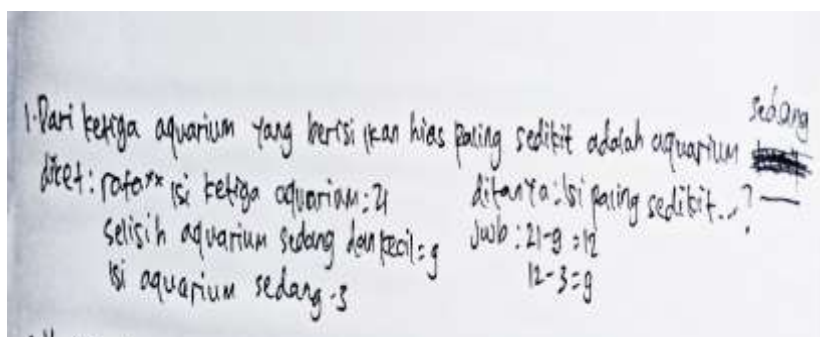 1. Dari ketiga aquarium yang berisi ikan hias paling sedikit adalah aquarium sedang
diket: rata** isi ketiga aquarium: 21
selisih aquarium sedang dan kecil = 9
isi aquarium sedang -3
ditanya: isi paling sedikit...?
jwb: 21-9 = 12
12-3 = 9